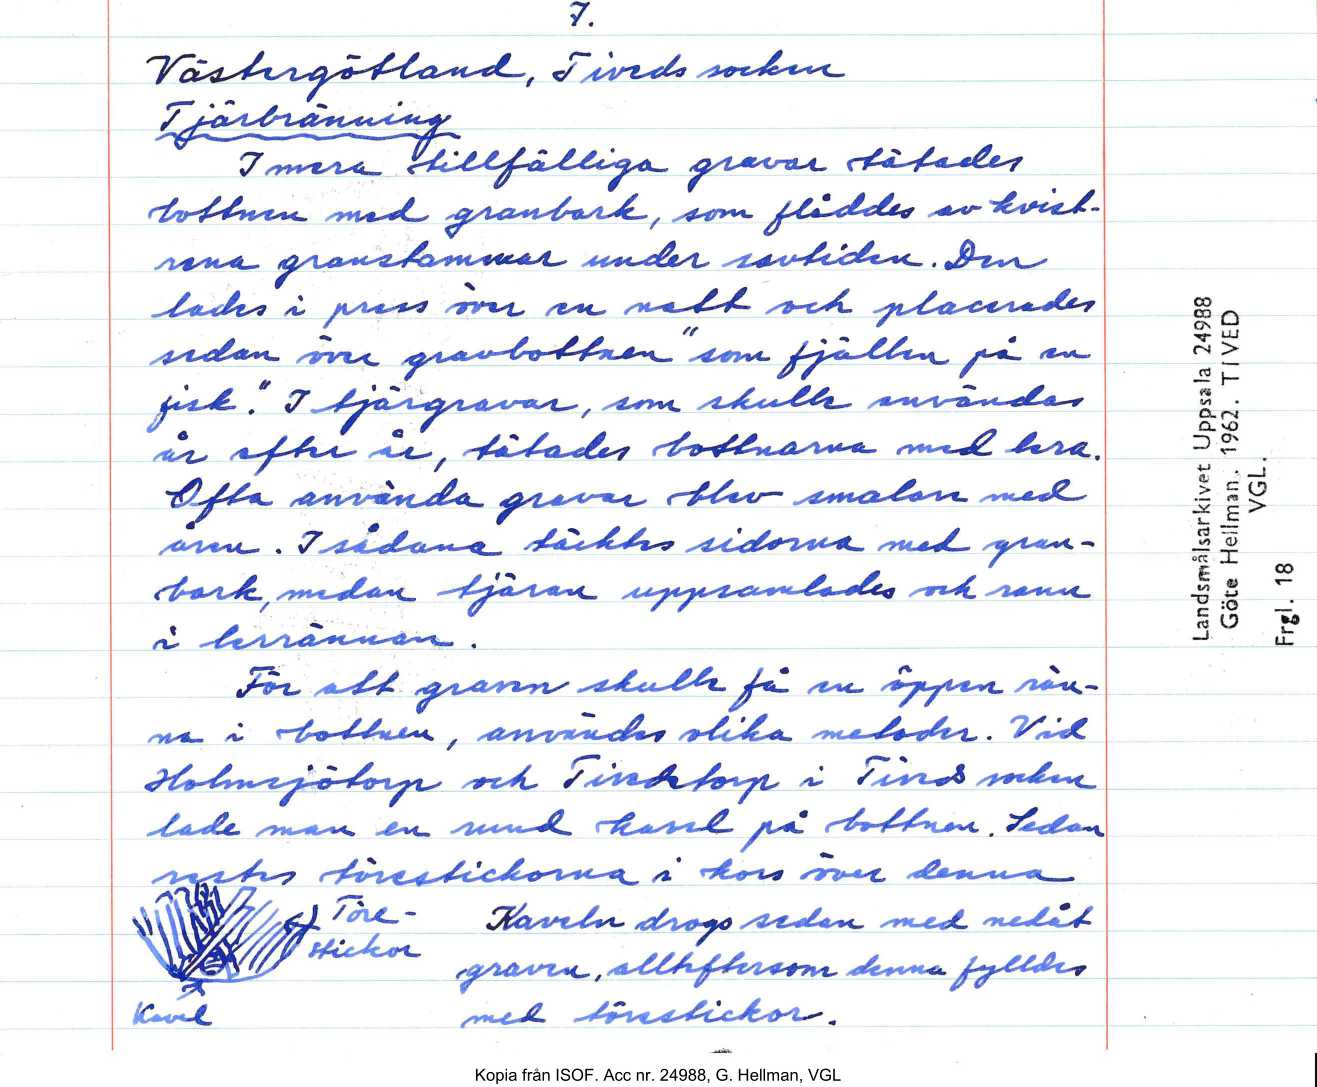 7.
Västergötland, Tiveds socken
Tjärbränning
I mera tillfälliga gravar tätades
bottnen med granbark, som flåddes av kvist-
rena granstammar under savtiden. Den
lades i press över en natt och placerades
sedan över gravbottnen "som fjällen på en
fisk." I tjärgravar, som skulle användas
år efter år, tätades bottnarna med lera.
Ofta använda gravar blev smalare med
åren. I sådana täcktes sidorna med gran-
bark, medan tjäran uppsamlades och rann
i lerrännan.
För att graven skulle få en öppen rän-
na i bottnen, användes olika metoder. Vid
Holmsjötorp och Tivedstorp i Tiveds socken
lade man en rund kavel på bottnen. Sedan
restes törestickorna i kors över denna
Töre-
stickor
Kavel
Kaveln drogs sedan med nedåt
graven, allteftersom denna fylldes
med törestickor.
Landsmålsarkivet Uppsala 24988
Göte Hellman. 1962. TIVED
VGL.
Frgl. 18
Kopia från ISOF. Acc nr. 24988, G. Hellman, VGL